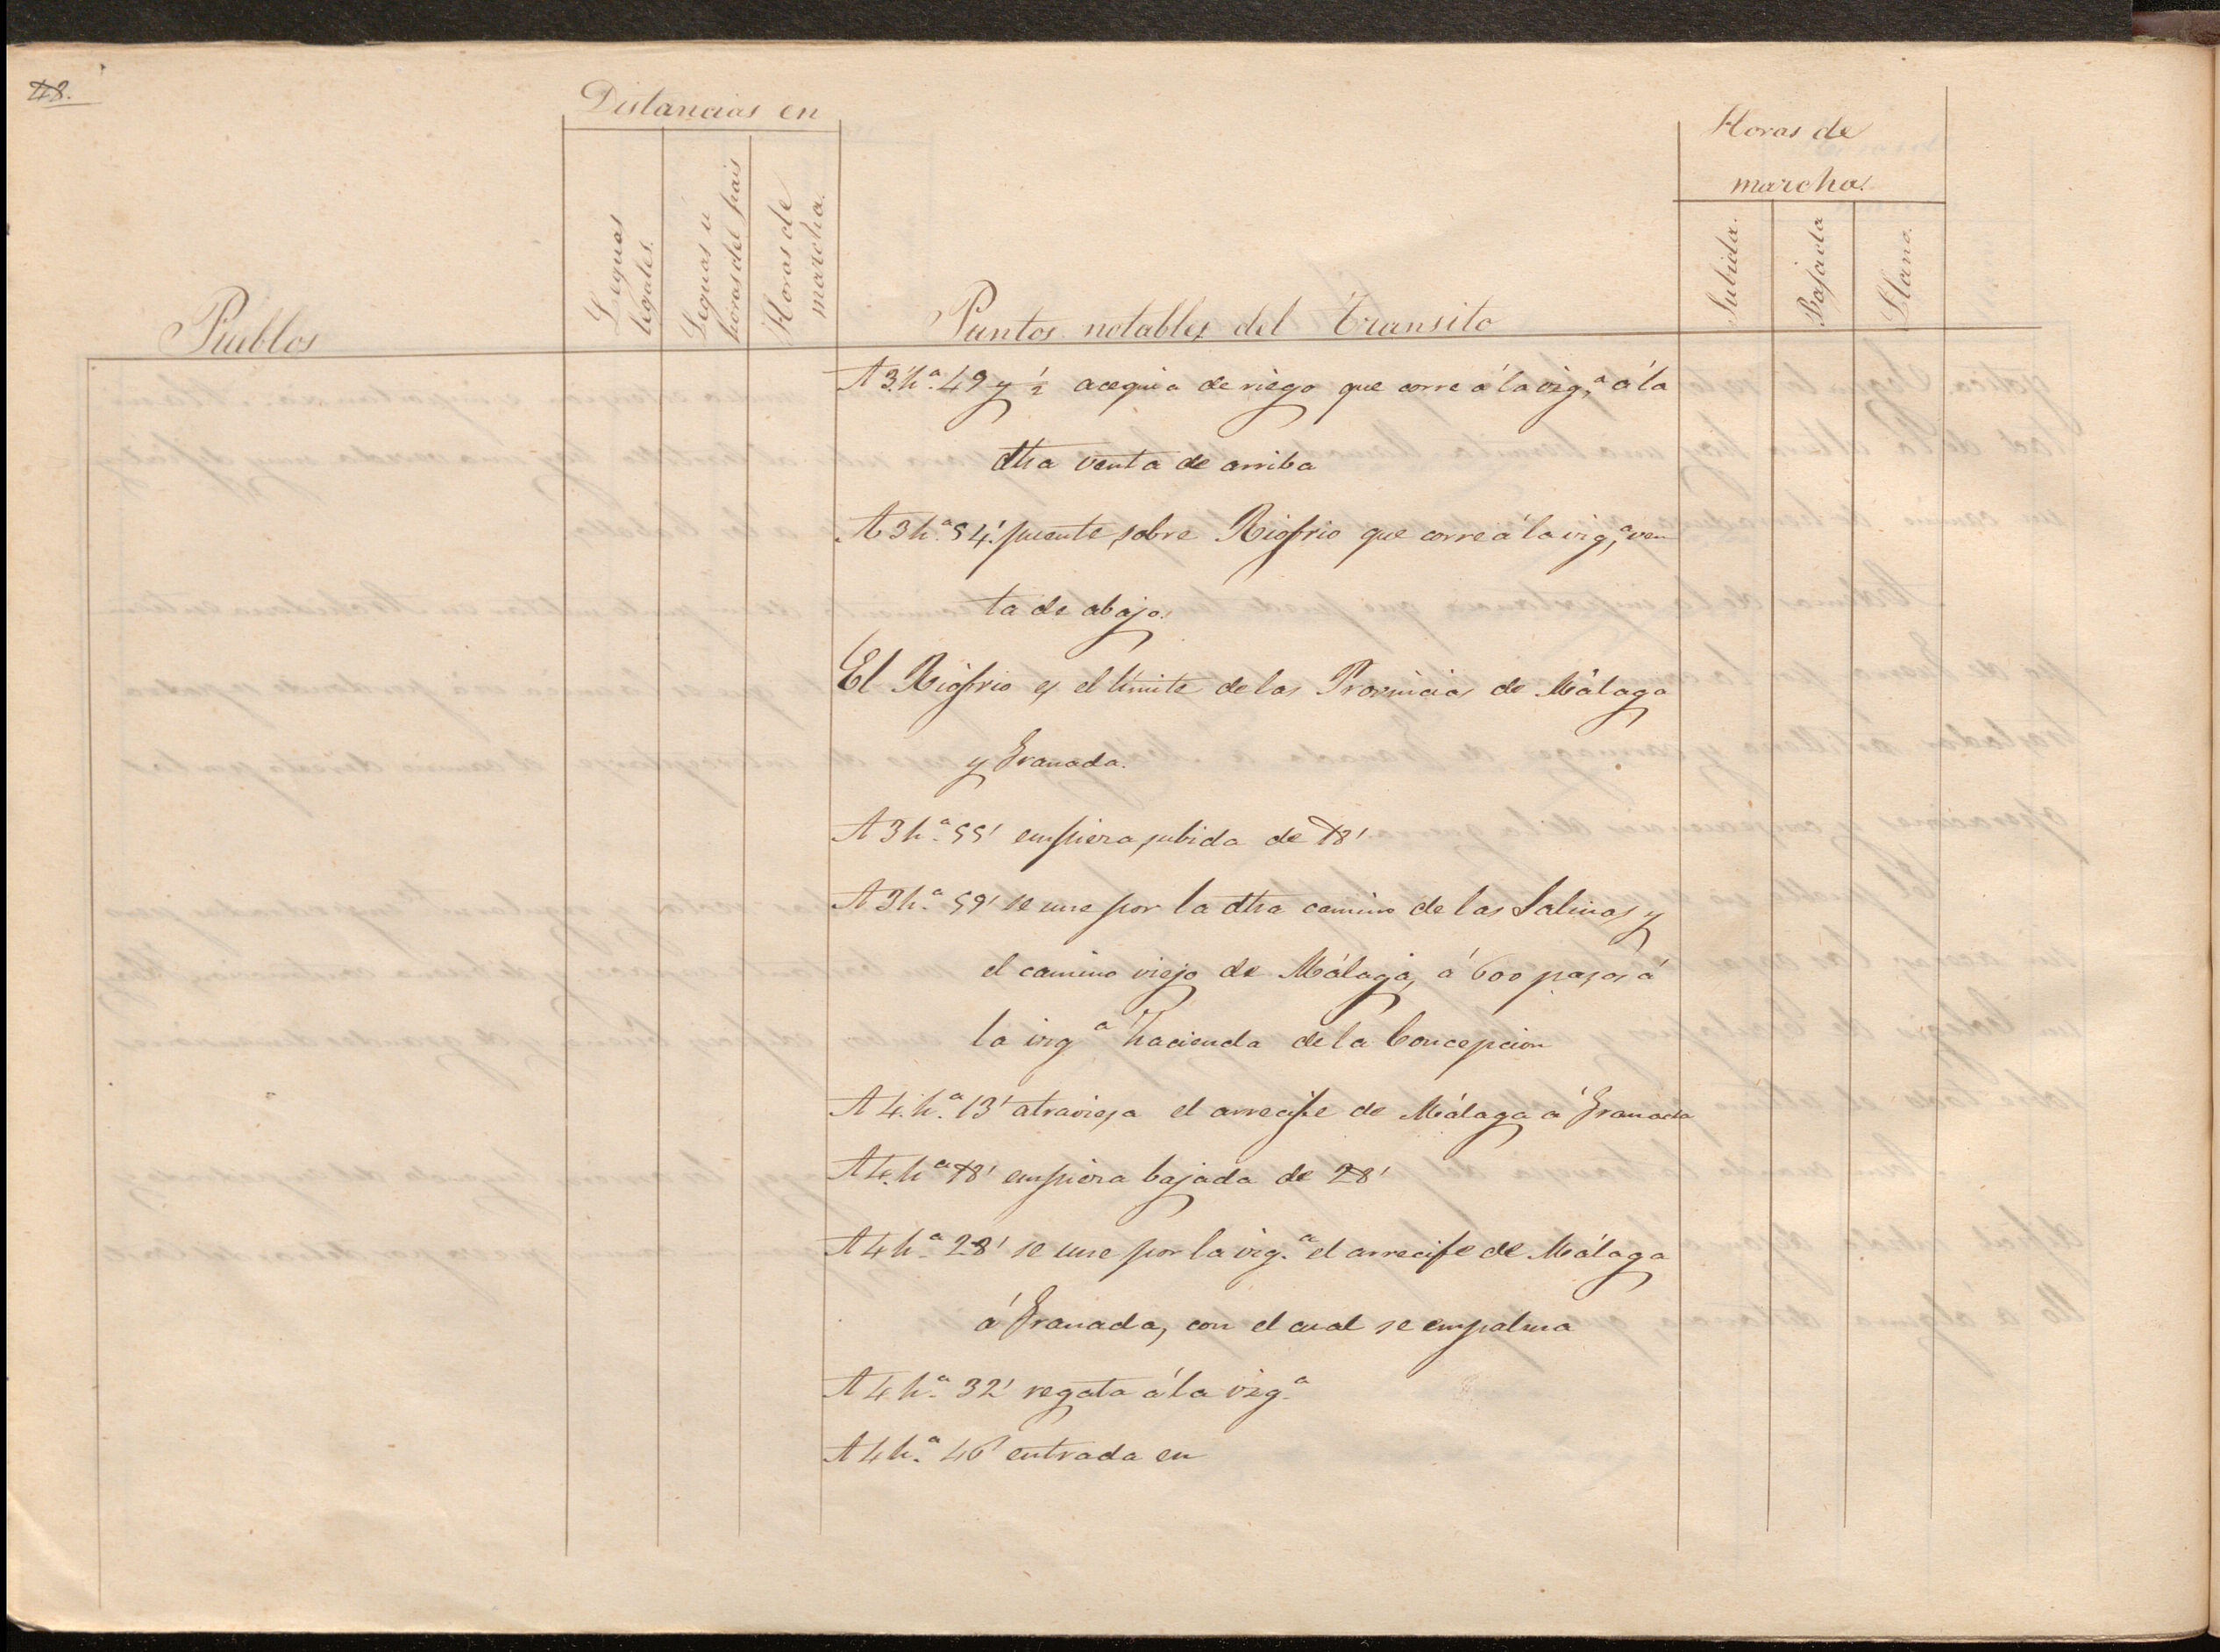 48.
Distancias en
Leguas legales.
Leguas ú horas del pais
Horas de marcha.
Horas de
marcha.
Subida.
Bajada
Llano.
Pueblos
Puntos notables del transito
A 3.hª. 49 y ½ acequia de riego que corre á la izqª, á la
dtra venta de arriba
A 3hª. 54' puente sobre Riofrio que corre á la izqª, ven
ta de abajo.
El Riofrio es el límite de las Provincias de Málaga
y Granada.
A 3hª. 55' empieza subida de 18'
A 3hª. 59' se une por la dtra camino de las Salinas y
el camino viejo de Málaga, á 600 pasos á
la izqª hacienda de la Concepcion
A 4.hª. 13' atraviesa el arrecife de Málaga á Granada
A 4.hª 18' empieza bajada de 28'
A 4hª. 28' se une por la izq.ª el arrecife de Málaga
á Granada, con el cual se empalma
A 4hª. 32' regata á la izqª.
A 4hª. 46' entrada en